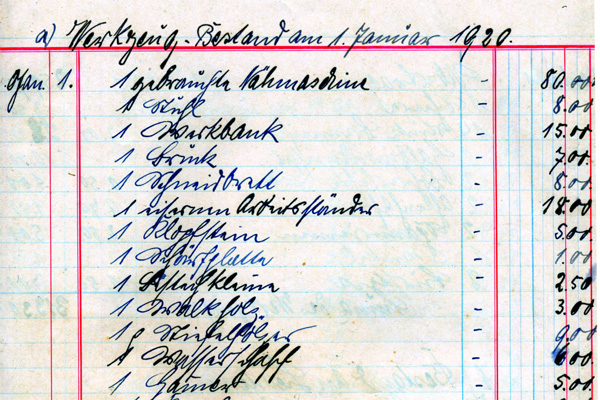 a) Werkzeug-Bestand am 1. Januar 1920.
Jan. 1. 1 gebrauchte Nähmaschine - 80.00
1 Stuhl - 8.00
1 Werkbank - 15.00
1 - 7.00
1 Schneidbrett - 8.00
1 eisernen Arbeitsständer - 18.00
1 Klopfstein - 5.00
1 Schärfplatte - 1.00
1 - 2.50
1 Walkholz - 3.00
1 p Stiefelhölzer 9.00
1 Wasserschaff - 6.00
1 Hamer - 5.00